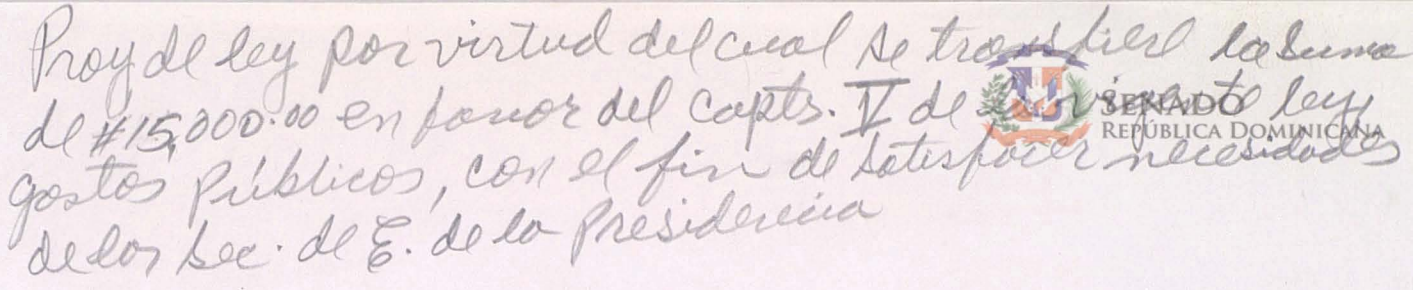 Proy de ley por virtud del cual se transfiere la suma
de #15,000.00 en favor del capts. IV de la vigente ley
gastos Públicos, con el fin de satisfacer necesidades
de las Sec. de E. de la Presidencia
SENADO
REPÚBLICA DOMINICANA